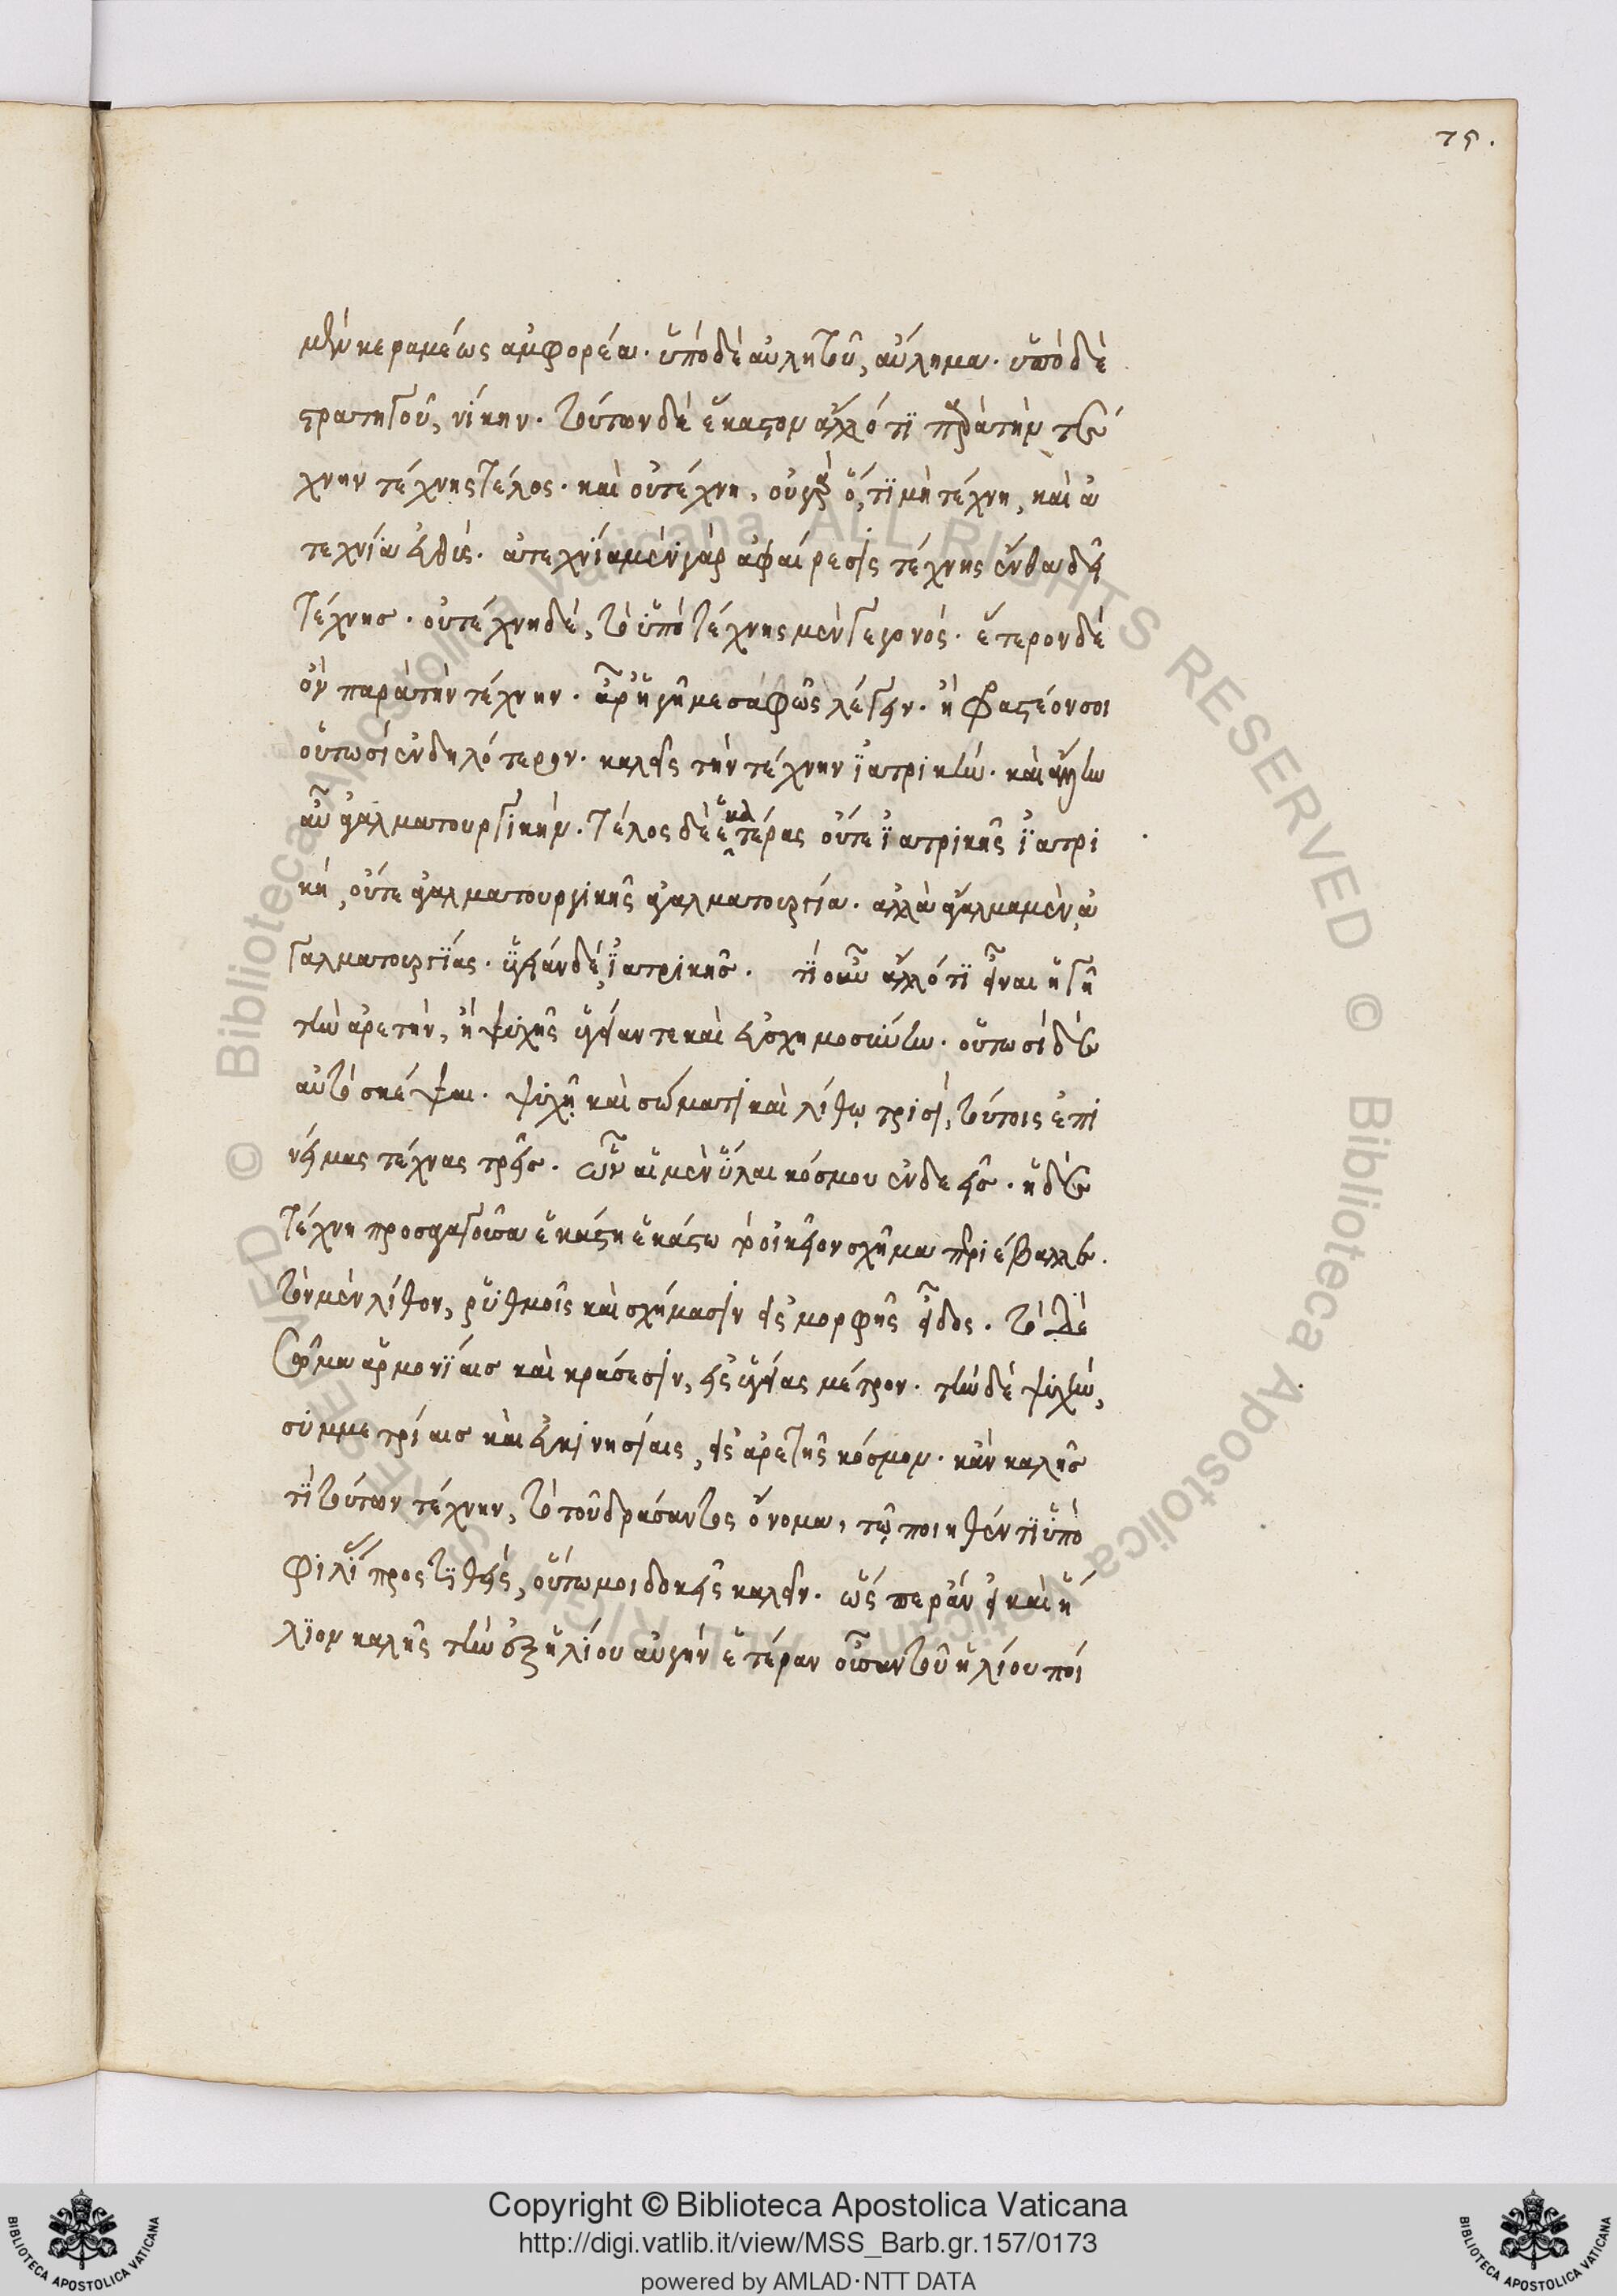 75.
μὲν κεραμέως ἀμφορέα. ὑπὸ δὲ αὐλητοῦ, αὔλημα. ὑπὸ δὲ
στρατηγοῦ, νίκην. τούτων δὴ ἕκαστον ἄλλό τι παρὰ τὴν τέ
χνην τέχνης τέλος. καὶ οὐ τέχνη, οὐ γὰρ ὅ, τι μὴ τέχνη, καὶ ἀ
τεχνία εὐθύς. ἀτεχνία μὲν γὰρ ἀφαίρεσις τέχνης ἔνθα δεῖ
τέχνης. οὐ τέχνη δέ, τὸ ὑπὸ τέχνης μὲν γεγονός. ἕτερον δὲ
ὂν παρὰ τὴν τέχνην. ἆρ' ἡγῇ με σαφῶς λέγειν. ἢ φαστέον σοι
οὑτωσὶ ἐνδηλότερον. καλεῖς τὴν τέχνην ἰατρικήν. καὶ ἄλλην
αὖ ἀγαλματουργικήν. τέλος δὲ ἑκατέρας οὔτε ἰατρικῆς ἰατρι
κή, οὔτε ἀγαλματουργικῆς ἀγαλματουργία. ἀλλὰ ἄγαλμα μὲν, ἀ
γαλματουργίας. ὑγείαν δέ, ἰατρικῆς. τί οὖν ἄλλό τι εἶναι ἡγῇ
τὴν ἀρετήν, ἢ ψυχῆς ὑγείαν τε καὶ εὐσχημοσύνην. οὑτωσὶ δὲ
αὐτὸ σκέψαι. ψυχῇ καὶ σώματι καὶ λίθῳ τρισί, τούτοις ἐπί
νειμας τέχνας τρεῖς. ὧν αἱ μὲν ὗλαι κόσμου ἐνδεεῖς. ἡ δὲ
τέχνη προσαγαγοῦσα ἑκάστη ἑκάστῳ τὸ οἰκεῖον σχῆμα περιέβαλλε.
τὸν μὲν λίθον, ῥυθμοῖς καὶ σχήμασιν εἰς μορφῆς εἶδος. τὸ δὲ
σῶμα ἁρμονίαις καὶ κράσεσιν, εἰς ὑγείας μέτρον. τὴν δὲ ψυχήν,
συμμετρίαις καὶ εὐκινησίαις, εἰς ἀρετῆς κόσμον. κἂν καλῇς
τι τούτων τέχνην, τὸ τοῦ δράσαντος ὄνομα, τῷ ποιηθέντι ὑπὸ
φιλίας προστιθείς, οὕτω μοι δοκεῖς καλεῖν. ὥσπερ ἂν εἰ καὶ ἥ
λιον καλῇς τὴν ἐξ ἡλίου αὐγήν ἑτέραν οὖσαν τοῦ ἡλίου ποί
Copyright © Biblioteca Apostolica Vaticana
http://digi.vatlib.it/view/MSS_Barb.gr.157/0173
powered by AMLAD·NTT DATA